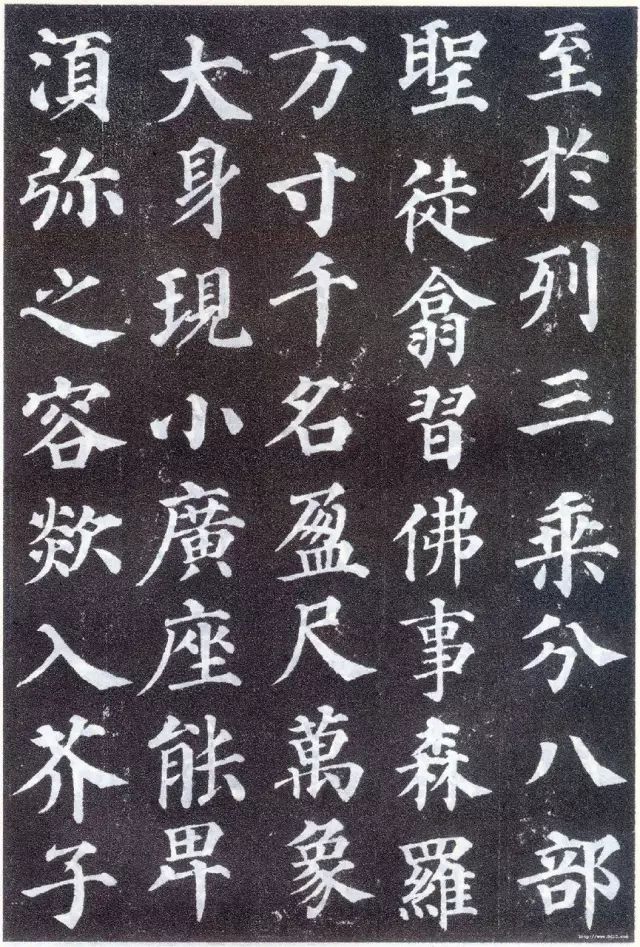 至於列三乗分八部
聖徒翕習佛事森羅
方寸千名盈尺萬象
大身現小廣座能卑
湏弥之容欻入芥子